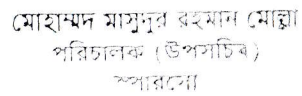 মোহাম্মদ মাসুদুর রহমান মোল্লা
পরিচালক (উপসচিব)
স্পারসো